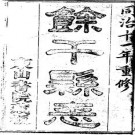 同治十一年重修
餘干縣志
東山書院